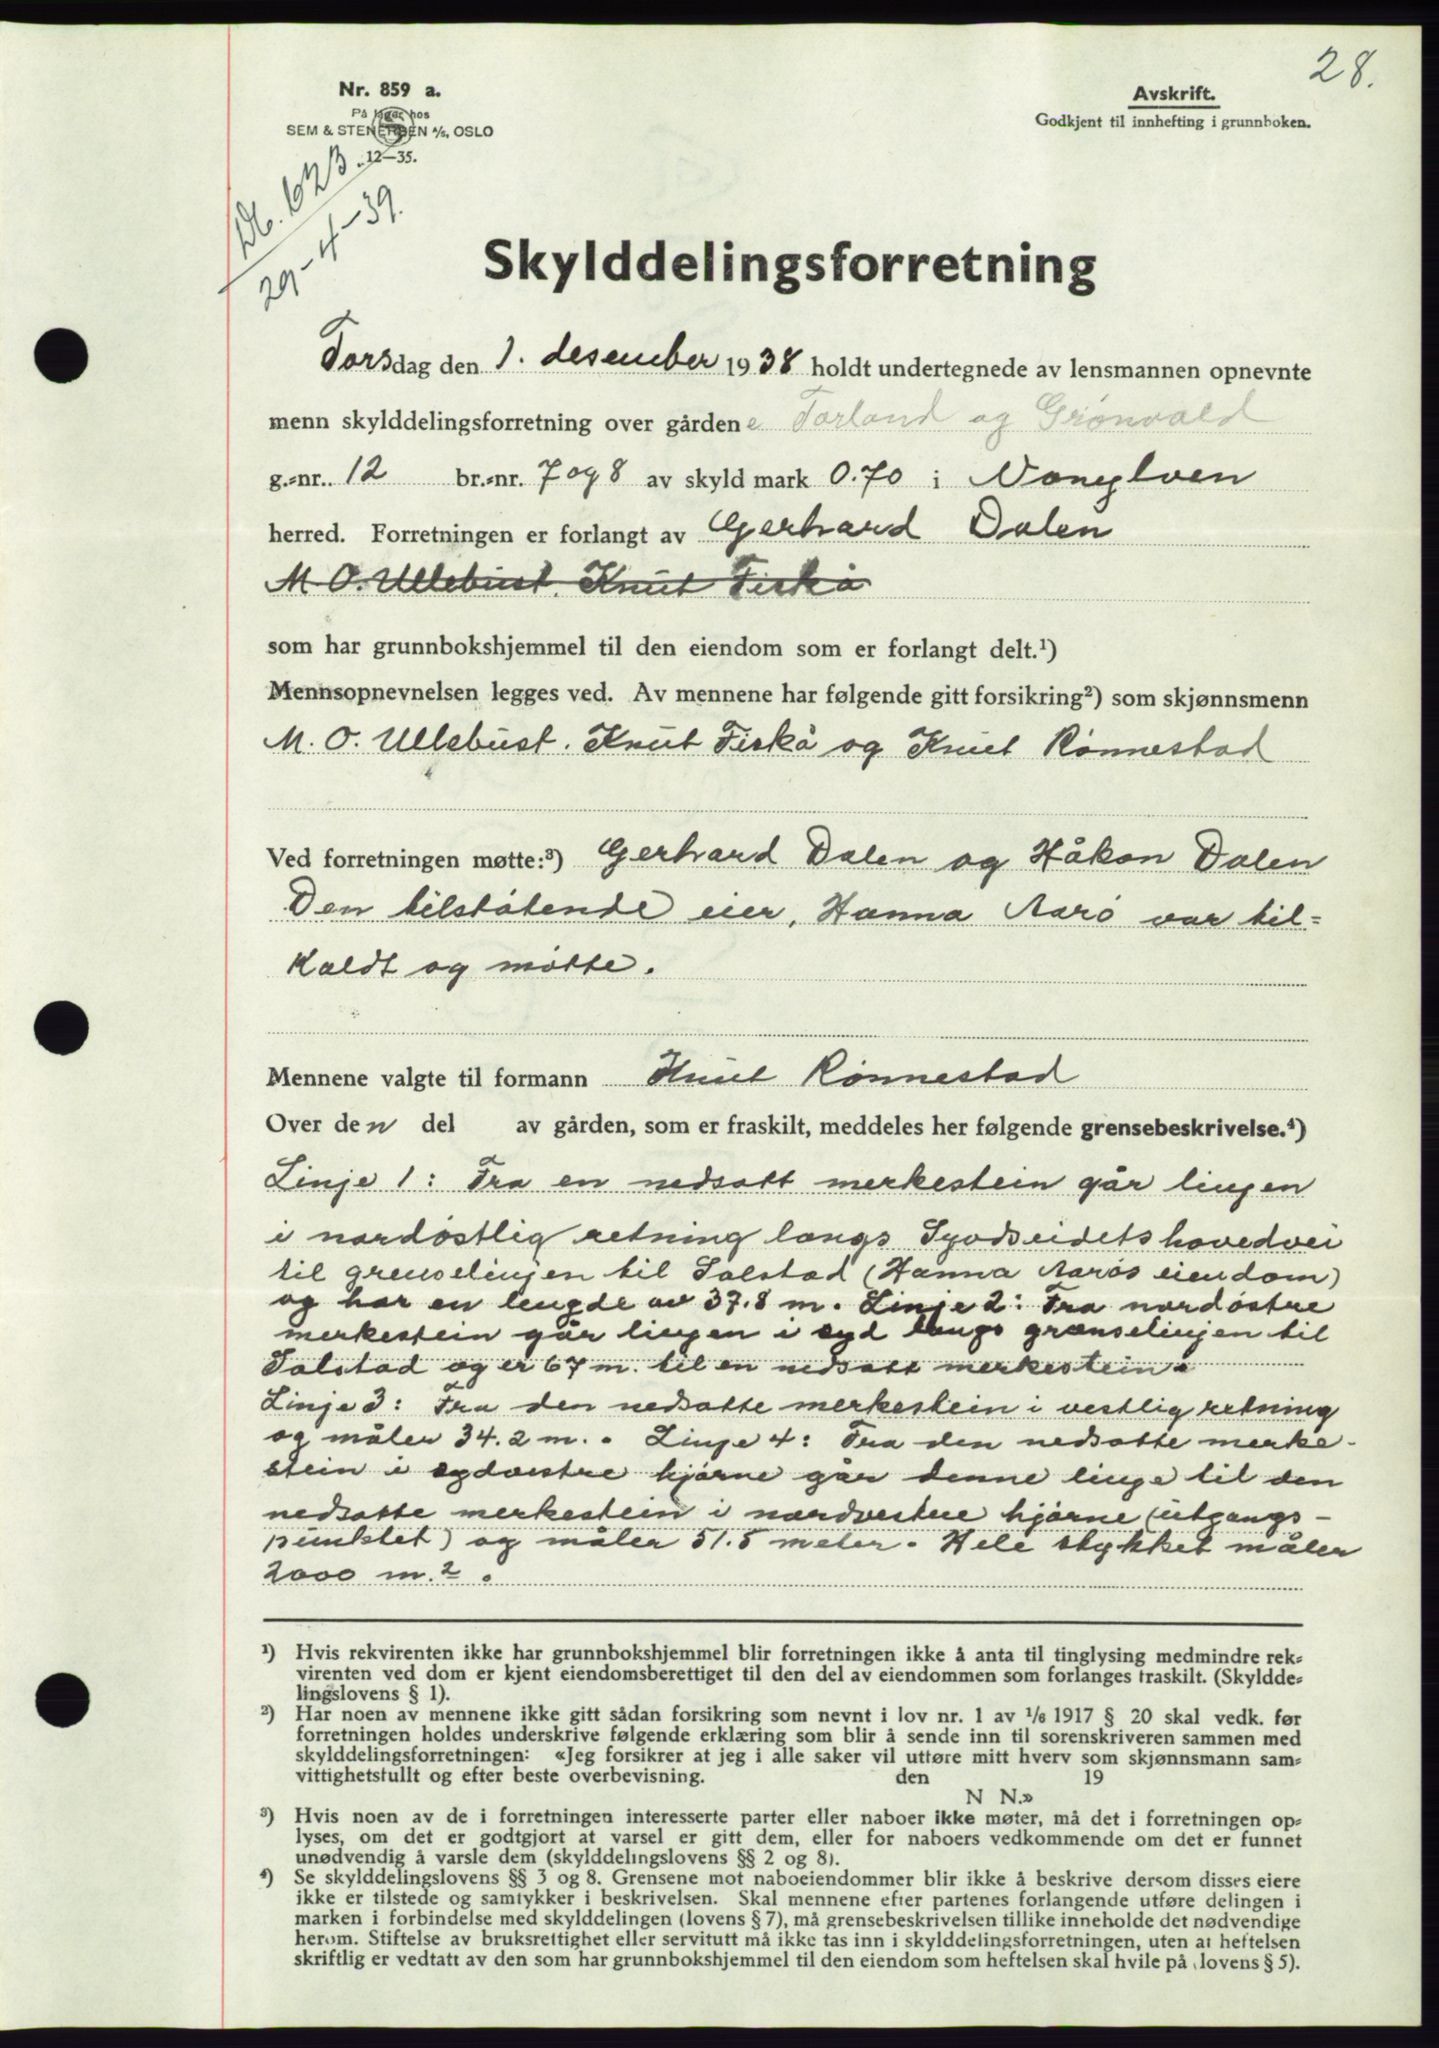 28.
Nr. 859 a.
På lager hos
SEM & STENERSEN A/S, OSLO
12—35.
Avskrift.
Godkjent til innhefting i grunnboken.
Db. 623
29-4-39.
Skylddelingsforretning
Torsdag den 1. desember 1938 holdt undertegnede av lensmannen opnevnte
menn skylddelingsforretning over gårdene Torland og Grönvold
g.-nr. 12 br.-nr. 7 og 8 av skyld mark 0.70 i
herred. Forretningen er forlangt av Gerhard Dalen
M. O. Ullebust. Knut Fiskå
som har grunnbokshjemmel til den eiendom som er forlangt delt.¹)
Mennsopnevnelsen legges ved. Av mennene har følgende gitt forsikring²) som skjønnsmenn
M. O. Ullebust. Knut Fiskå og Knut Rönnestad
Ved forretningen møtte:³) Gerhard Dalen og Håkon Dalen
Den tilstötende eier, Hanna Aarö var til=
kaldt og mötte.
Mennene valgte til formann Knut Rönnestad
Over den del av gården, som er fraskilt, meddeles her følgende grensebeskrivelse.⁴)
Linje 1: Fra en nedsatt merkestein går linjen
i nordöstlig retning langs Syvdseidets hovedvei
til grenselinjen til Solstad (Hanna Aarös eiendom)
og har en lengde av 37.8 m. Linje 2: Fra nordöstre
merkestein går linjen i syd langs grenselinjen til
Solstad og er 67 m. til en nedsatt merkestein.
Linje 3: Fra den nedsatte merkestein i vestlig retning
og måler 34.2 m. Linje 4: Fra den nedsatte merke-
stein i sydvestre hjörne går denne linje til den
nedsatte merkestein i nordvestre hjörne (utgangs-
punktet) og måler 51.5 meter. Hele stykket måler
2000 m.².
¹) Hvis rekvirenten ikke har grunnbokshjemmel blir forretningen ikke å anta til tinglysing medmindre rek-
virenten ved dom er kjent eiendomsberettiget til den del av eiendommen som forlanges fraskilt. (Skyldde-
lingslovens § 1).
²) Har noen av mennene ikke gitt sådan forsikring som nevnt i lov nr. 1 av 1/6 1917 § 20 skal vedk. før
forretningen holdes underskrive følgende erklæring som blir å sende inn til sorenskriveren sammen med
skylddelingsforretningen: «Jeg forsikrer at jeg i alle saker vil utføre mitt hverv som skjønnsmann sam-
vittighetsfullt og efter beste overbevisning. den 19
N N.»
³) Hvis noen av de i forretningen interesserte parter eller naboer ikke møter, må det i forretningen op-
lyses, om det er godtgjort at varsel er gitt dem, eller for naboers vedkommende om det er funnet
unødvendig å varsle dem (skylddelingslovens §§ 2 og 8).
⁴) Se skylddelingslovens §§ 3 og 8. Grensene mot naboeiendommer blir ikke å beskrive dersom disses eiere
ikke er tilstede og samtykker i beskrivelsen. Skal mennene efter partenes forlangende utføre delingen i
marken i forbindelse med skylddelingen (lovens § 7), må grensebeskrivelsen tillike inneholde det nødvendige
herom. Stiftelse av bruksrettighet eller servitutt må ikke tas inn i skylddelingsforretningen, uten at heftelsen
skriftlig er vedtatt av den som har grunnbokshjemmel til den eiendom som heftelsen skal hvile på (lovens § 5).